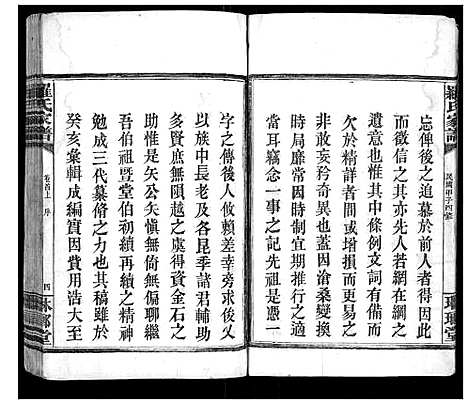 羅氏家譜
民國甲子四修
忘俾後之追慕於前人者得因此
而有徵然此亦先人若網在綱之
遺意也而其中條例文詞間有
欠於精詳者間或增損而更易之
時局靡常因時制宜期推行之盡
非敢妄矜奇異也蓋因滄桑變換
當耳竊念先祖是憑一
字之傳後人攸賴差幸秀求後父
以及族中長老及各昆季諸君輔助
多賢庶無隕越之處得資金石之
堅於是矢公矢慎無倚無偏聊繼
吾伯祖暨堂伯初續再續之精神
勉成三代纂脩之力也其稿雖於
癸亥彙輯成編實因費用浩大至
羅氏家譜
卷首上 序
四